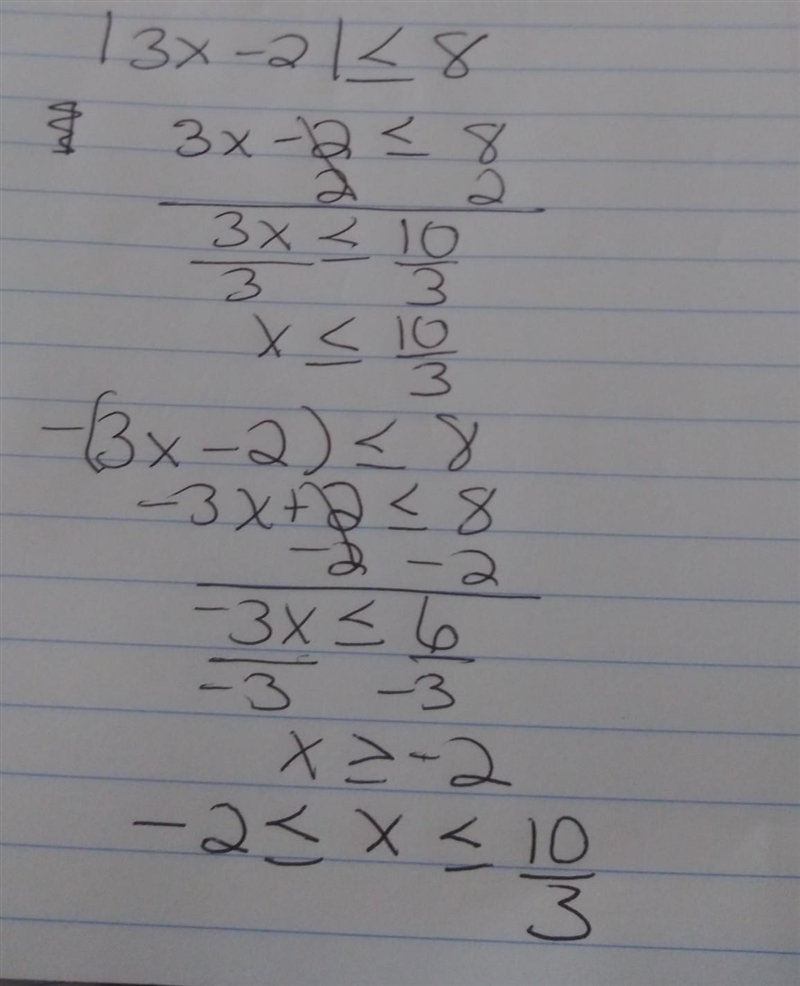 |3x - 2| ≤ 8
3x - 2 ≤ 8
2 2
3x ≤ 10
3 3
x ≤ 10
3
-(3x - 2) ≤ 8
-3x + 2 ≤ 8
-2 -2
-3x ≤ 6
-3 -3
x ≥ -2
-2 ≤ x ≤ 10
3